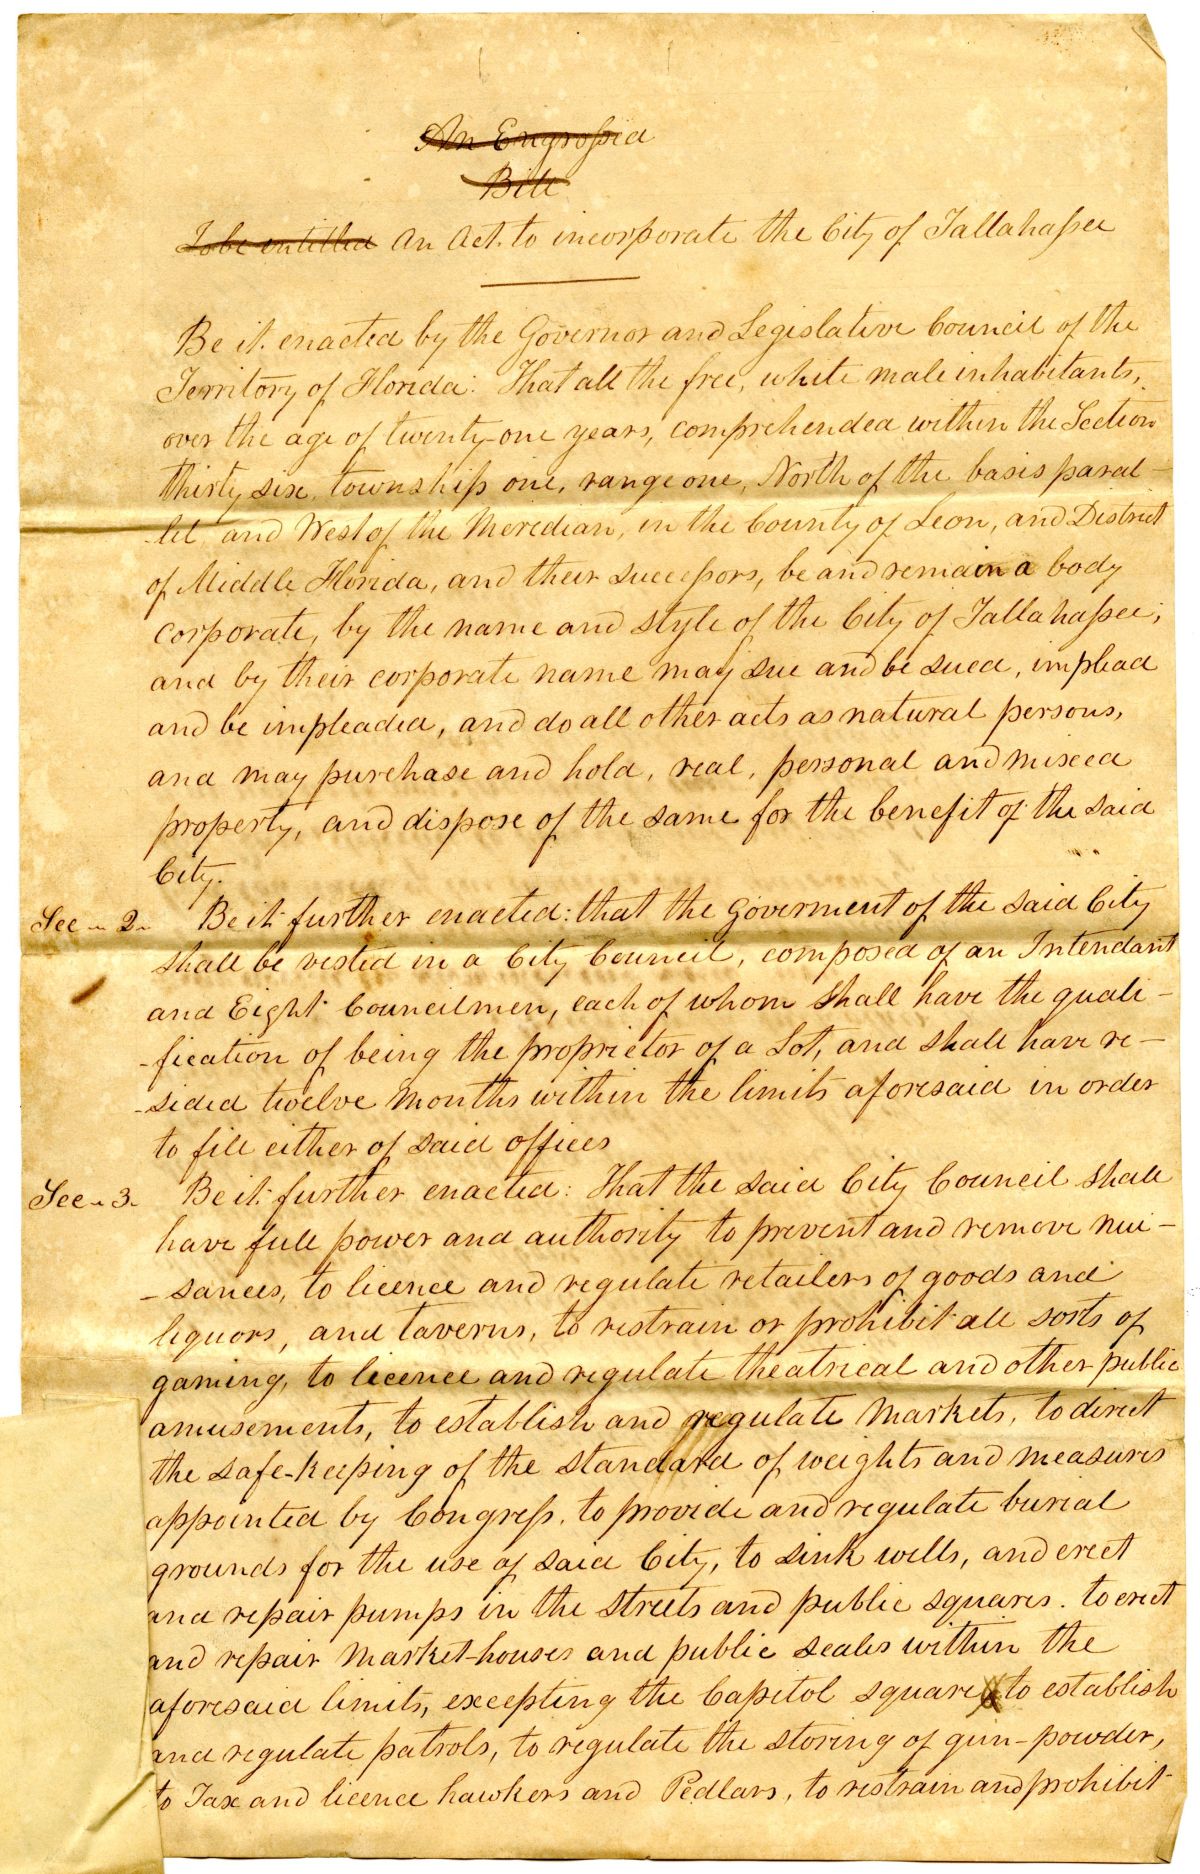 An Engrossed
Bill
To be entitled An Act to incorporate the City of Tallahassee
Be it enacted by the Governor and Legislative Council of the
Territory of Florida: That all the free, white male inhabitants,
over the age of twenty-one years, comprehended within the Section
thirty six, township one, range one, North of the basis paral-
-lel and West of the Meredian, in the County of Leon, and District
of Middle Florida, and their successors, be and remain a body
corporate, by the name and style of the City of Tallahassee;
and by their corporate name may sue and be sued, implead
and be impleaded, and do all other acts as natural persons,
and may purchase and hold, real, personal and mixed
property, and dispose of the same for the benefit of the said
City.
Sec - 2- Be it further enacted: that the Goverment of the said City
shall be vested in a City Council, composed of an Intendant
and Eight Councilmen, each of whom shall have the quali-
-fication of being the proprietor of a Lot, and shall have re-
-sided twelve Months within the limits aforesaid in order
to fill either of said offices
Sec - 3- Be it further enacted: That the said City Council shall
have full power and authority to prevent and remove nui-
-sances, to licence and regulate retailers of goods and
liquors, and taverns, to restrain or prohibit all sorts of
gaming, to licence and regulate theatrical and other public
amusements, to establish and regulate Markets, to direct
the safe-keeping of the standard of weights and measures
appointed by Congress. to provide and regulate burial
grounds for the use of said City, to sink wells, and erect
and repair pumps in the streets and public squares. to erect
and repair Market-houses and public scales within the
aforesaid limits, excepting the Capitol square to establish
and regulate patrols, to regulate the storing of gun-powder,
to Tax and licence hawkers and Pedlars, to restrain and prohibit